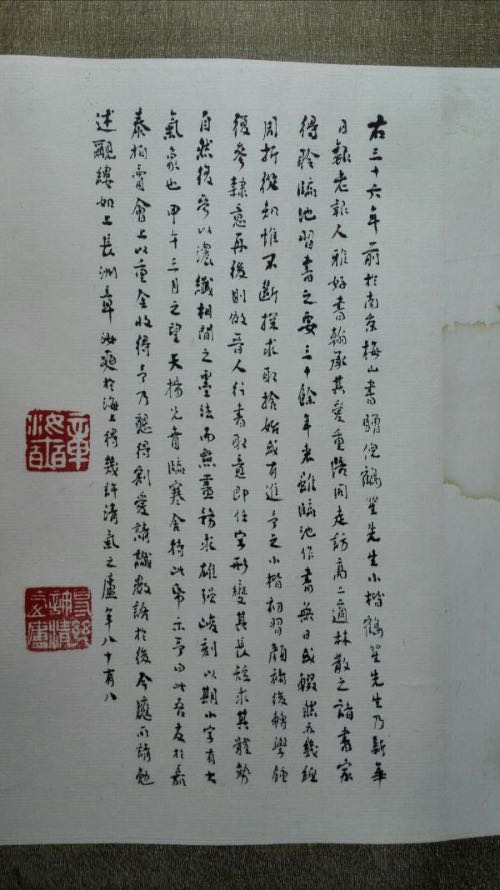 右三十六年前於南京梅山書贈倪鶴笙先生小楷鶴笙先生乃新華
日報老報人雅好書翰承其愛重偕同走訪高二適林散之諸書家
得聆臨池習書之要三十餘年來雖臨池作書無日或輟然亦幾經
周折從知惟不斷探求取捨始或有進予之小楷初習顏褚後轉學鍾
繇參隸意再後則倣晉人行書取意即任字形變其長短求其體勢
自然復參以濃纖相間之墨法而點畫務求雄強峻刻以期小字有大
氣象也甲午三月之望天揚兄賁臨寒舍持此帋示予曰此吾友於嘉
泰拍賣會上以重金收得予乃懇得割愛請識數語於後今應所請勉
述覼縷如上長洲章汝奭於海上得幾許清氣之廬年八十有八
章
汝奭
得幾
許清
氣廬